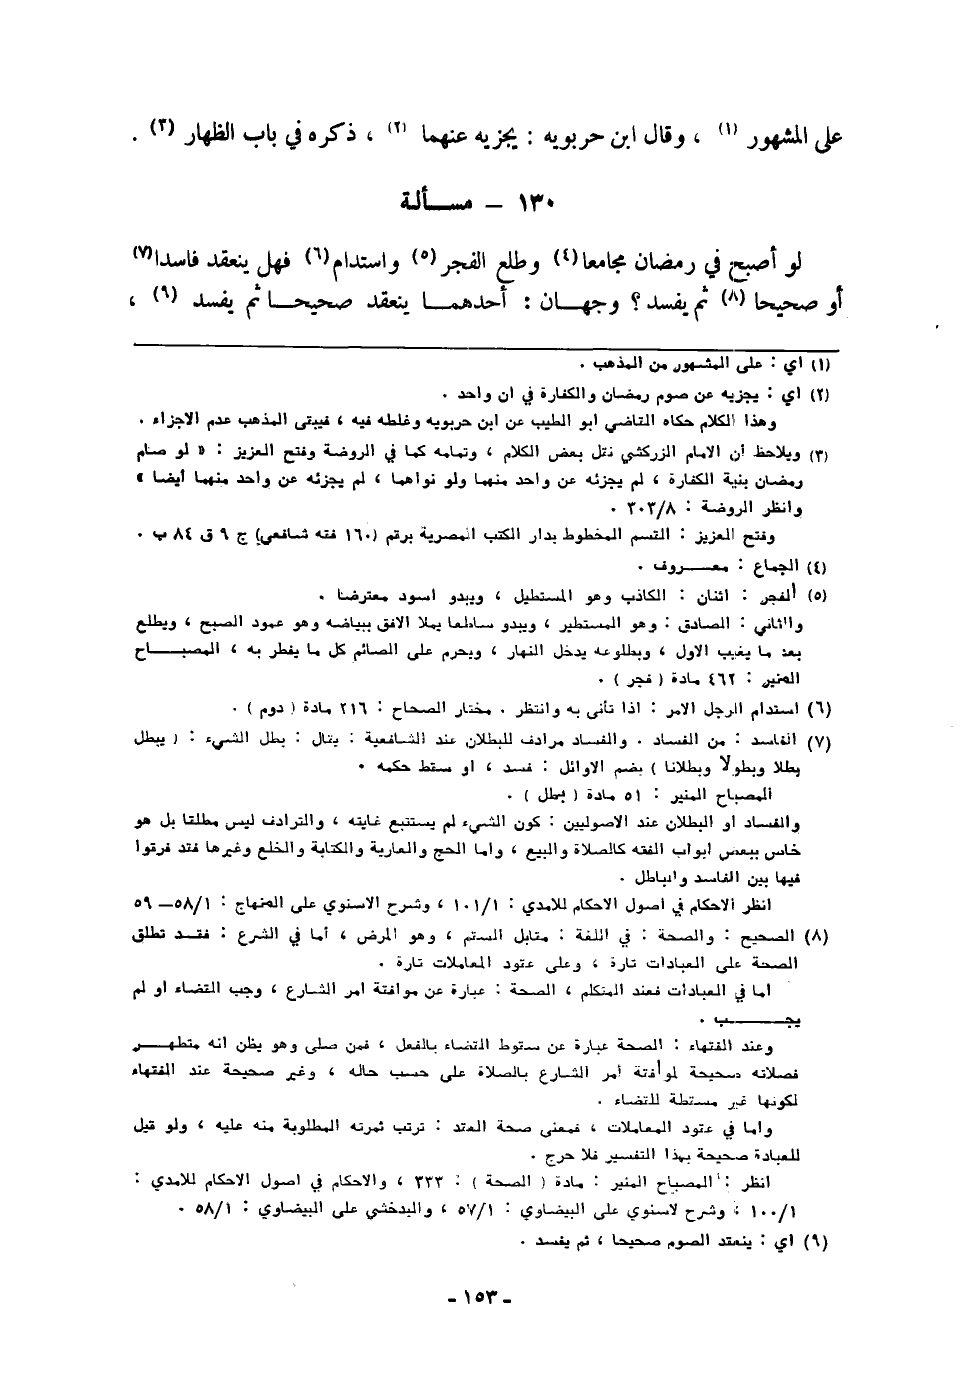 على المشهور (١) ، وقال ابن حربويه : يجزيه عنهما (٢) ، ذكره في باب الظهار (٣) .
١٣٠ – مسـألة
لو أصبح في رمضان مجامعا(٤) وطلع الفجر (٥) واستدام(٦) فهل ينعقد فاسدا(٧)
أو صحيحا (٨) ثم يفسد ؟ وجهـان : أحدهمـا ينعقد صحيحـا ثم يفسد (٩) ،
(١) اي : على المشهور من المذهب .
(٢) اي : يجزيه عن صوم رمضان والكفارة في ان واحد .
وهذا الكلام حكاه القاضي ابو الطيب عن ابن حربويه وغلطه فيه ، فيبقى المذهب عدم الاجزاء .
(٣) ويلاحظ أن الامام الزركشي نقل بعض الكلام ، وتمامه كما في الروضة وفتح العزيز : « لو صام
رمضان بنية الكفارة ، لم يجزئه عن واحد منهما ولو نواهما ، لم يجزئه عن واحد منهما أيضا »
وانظر الروضة : ٣٠٣/٨ .
وفتح العزيز : القسم المخطوط بدار الكتب المصرية برقم (١٦٠ فقه شافعي) ج ٩ ق ٨٤ ب .
(٤) الجماع : معـــروف .
(٥) ألفجر : اثنان : الكاذب وهو المستطيل ، ويبدو اسود معترضا .
والثاني : الصادق : وهو المستطير ، ويبدو ساطعا يملا الافق ببياضه وهو عمود الصبح ، ويطلع
بعد ما يغيب الاول ، وبطلوعه يدخل النهار ، ويحرم على الصائم كل ما يفطر به ، المصبـــاح
المنير : ٤٦٢ مادة ( فجر ) .
(٦) استدام الرجل الامر : اذا تأنى به وانتظر . مختار الصحاح : ٢١٦ مادة ( دوم ) .
(٧) الفاسد : من الفساد . والفساد مرادف للبطلان عند الشافعية : يقال : بطل الشيء : ( يبطل
بطلا وبطولا وبطلانا ) بضم الاوائل : فسد ، او سقط حكمه .
المصباح المنير : ٥١ مادة ( بطل ) .
والفساد او البطلان عند الاصوليين : كون الشيء لم يستتبع غايته ، والترادف ليس مطلقا بل هو
خاس ببعض ابواب الفقه كالصلاة والبيع ، واما الحج والعارية والكتابة والخلع وغيرها فقد فرقوا
فيها بين الفاسد والباطل .
انظر الاحكام في اصول الاحكام للامدي : ١٠١/١ ، وشرح الاسنوي على المنهاج : ٥٨/١– ٥٩
(٨) الصحيح : والصحة : في اللغة : مقابل السقم ، وهو المرض ، أما في الشرع : فقـد تطلق
الصحة على العبادات تارة ، وعلى عقود المعاملات تارة .
اما في العبادات فعند المتكلم ، الصحة : عبارة عن موافقة امر الشارع ، وجب القضاء او لم
يجـــــب .
وعند الفقهاء : الصحة عبارة عن سقوط القضاء بالفعل ، فمن صلى وهو يظن انه متطهـــر
فصلاته صحيحة لموأفقة أمر الشارع بالصلاة على حسب حاله ، وغير صحيحة عند الفقهاء
لكونها غير مسقطة للقضاء .
واما في عقود المعاملات ، فمعنى صحة العقد : ترتب ثمرته المطلوبة منه عليه ، ولو قيل
للعبادة صحيحة بهذا التفسير فلا حرج .
انظر : المصباح المنير : مادة ( الصحة ) : ٣٣٣ ، والاحكام في اصول الاحكام للامدي :
١٠٠/١ ، وشرح لاسنوي على البيضاوي : ٥٧/١ ، والبدخشي على البيضاوي : ٥٨/١ .
(٩) اي : ينعقد الصوم صحيحا ، ثم يفسد .
ـ ١٥٣ ـ